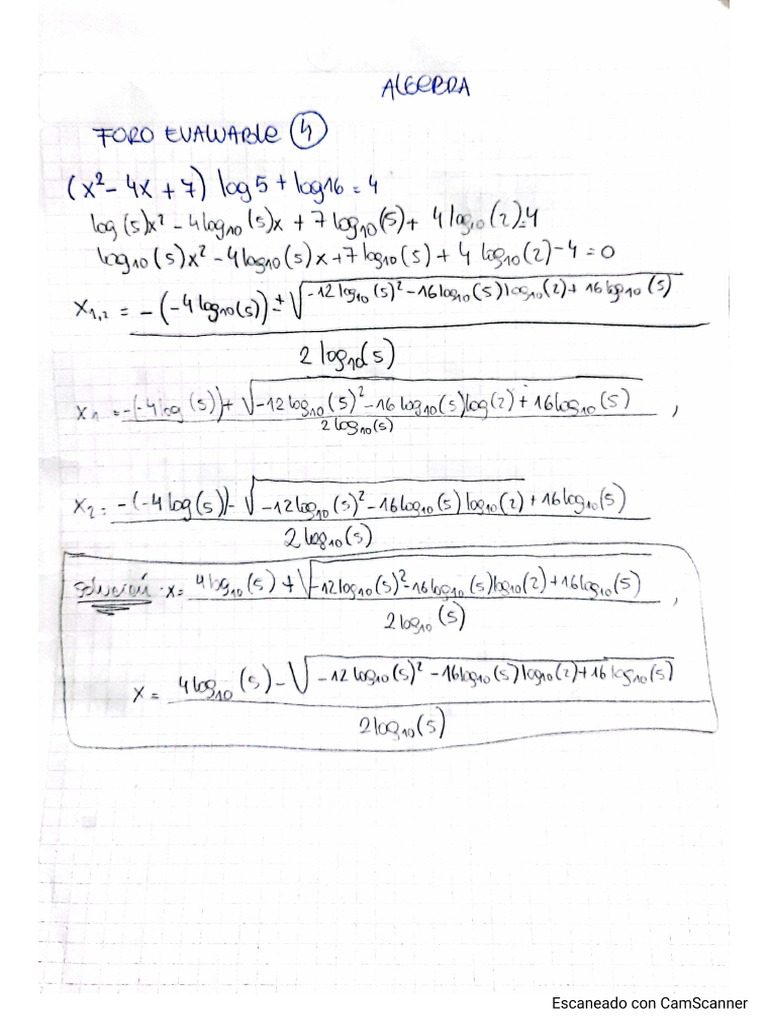 ALGEBRA
FORO EVALUABLE 4
(x² - 4x + 7) log 5 + log 16 = 4
log(5)x² - 4log₁₀(5)x + 7log₁₀(5) + 4log₁₀(2)=4
log₁₀(5)x² - 4log₁₀(5)x + 7log₁₀(5) + 4log₁₀(2) - 4 = 0
x₁,₂ = -(-4log₁₀(5)) ± √-12log₁₀(5)² - 16log₁₀(5)log₁₀(2) + 16log₁₀(5)
2log₁₀(5)
x₁ = -(-4log(5)) + √-12log₁₀(5)² - 16log₁₀(5)log(2) + 16log₁₀(5) ,
2log₁₀(5)
x₂ = -(-4log(5)) - √-12log₁₀(5)² - 16log₁₀(5)log₁₀(2) + 16log₁₀(5)
2log₁₀(5)
Solución · x = 4log₁₀(5) + √-12log₁₀(5)² - 16log₁₀(5)log₁₀(2) + 16log₁₀(5) ,
2log₁₀(5)
x = 4log₁₀(5) - √-12log₁₀(5)² - 16log₁₀(5)log₁₀(2) + 16log₁₀(5)
2log₁₀(5)
Escaneado con CamScanner